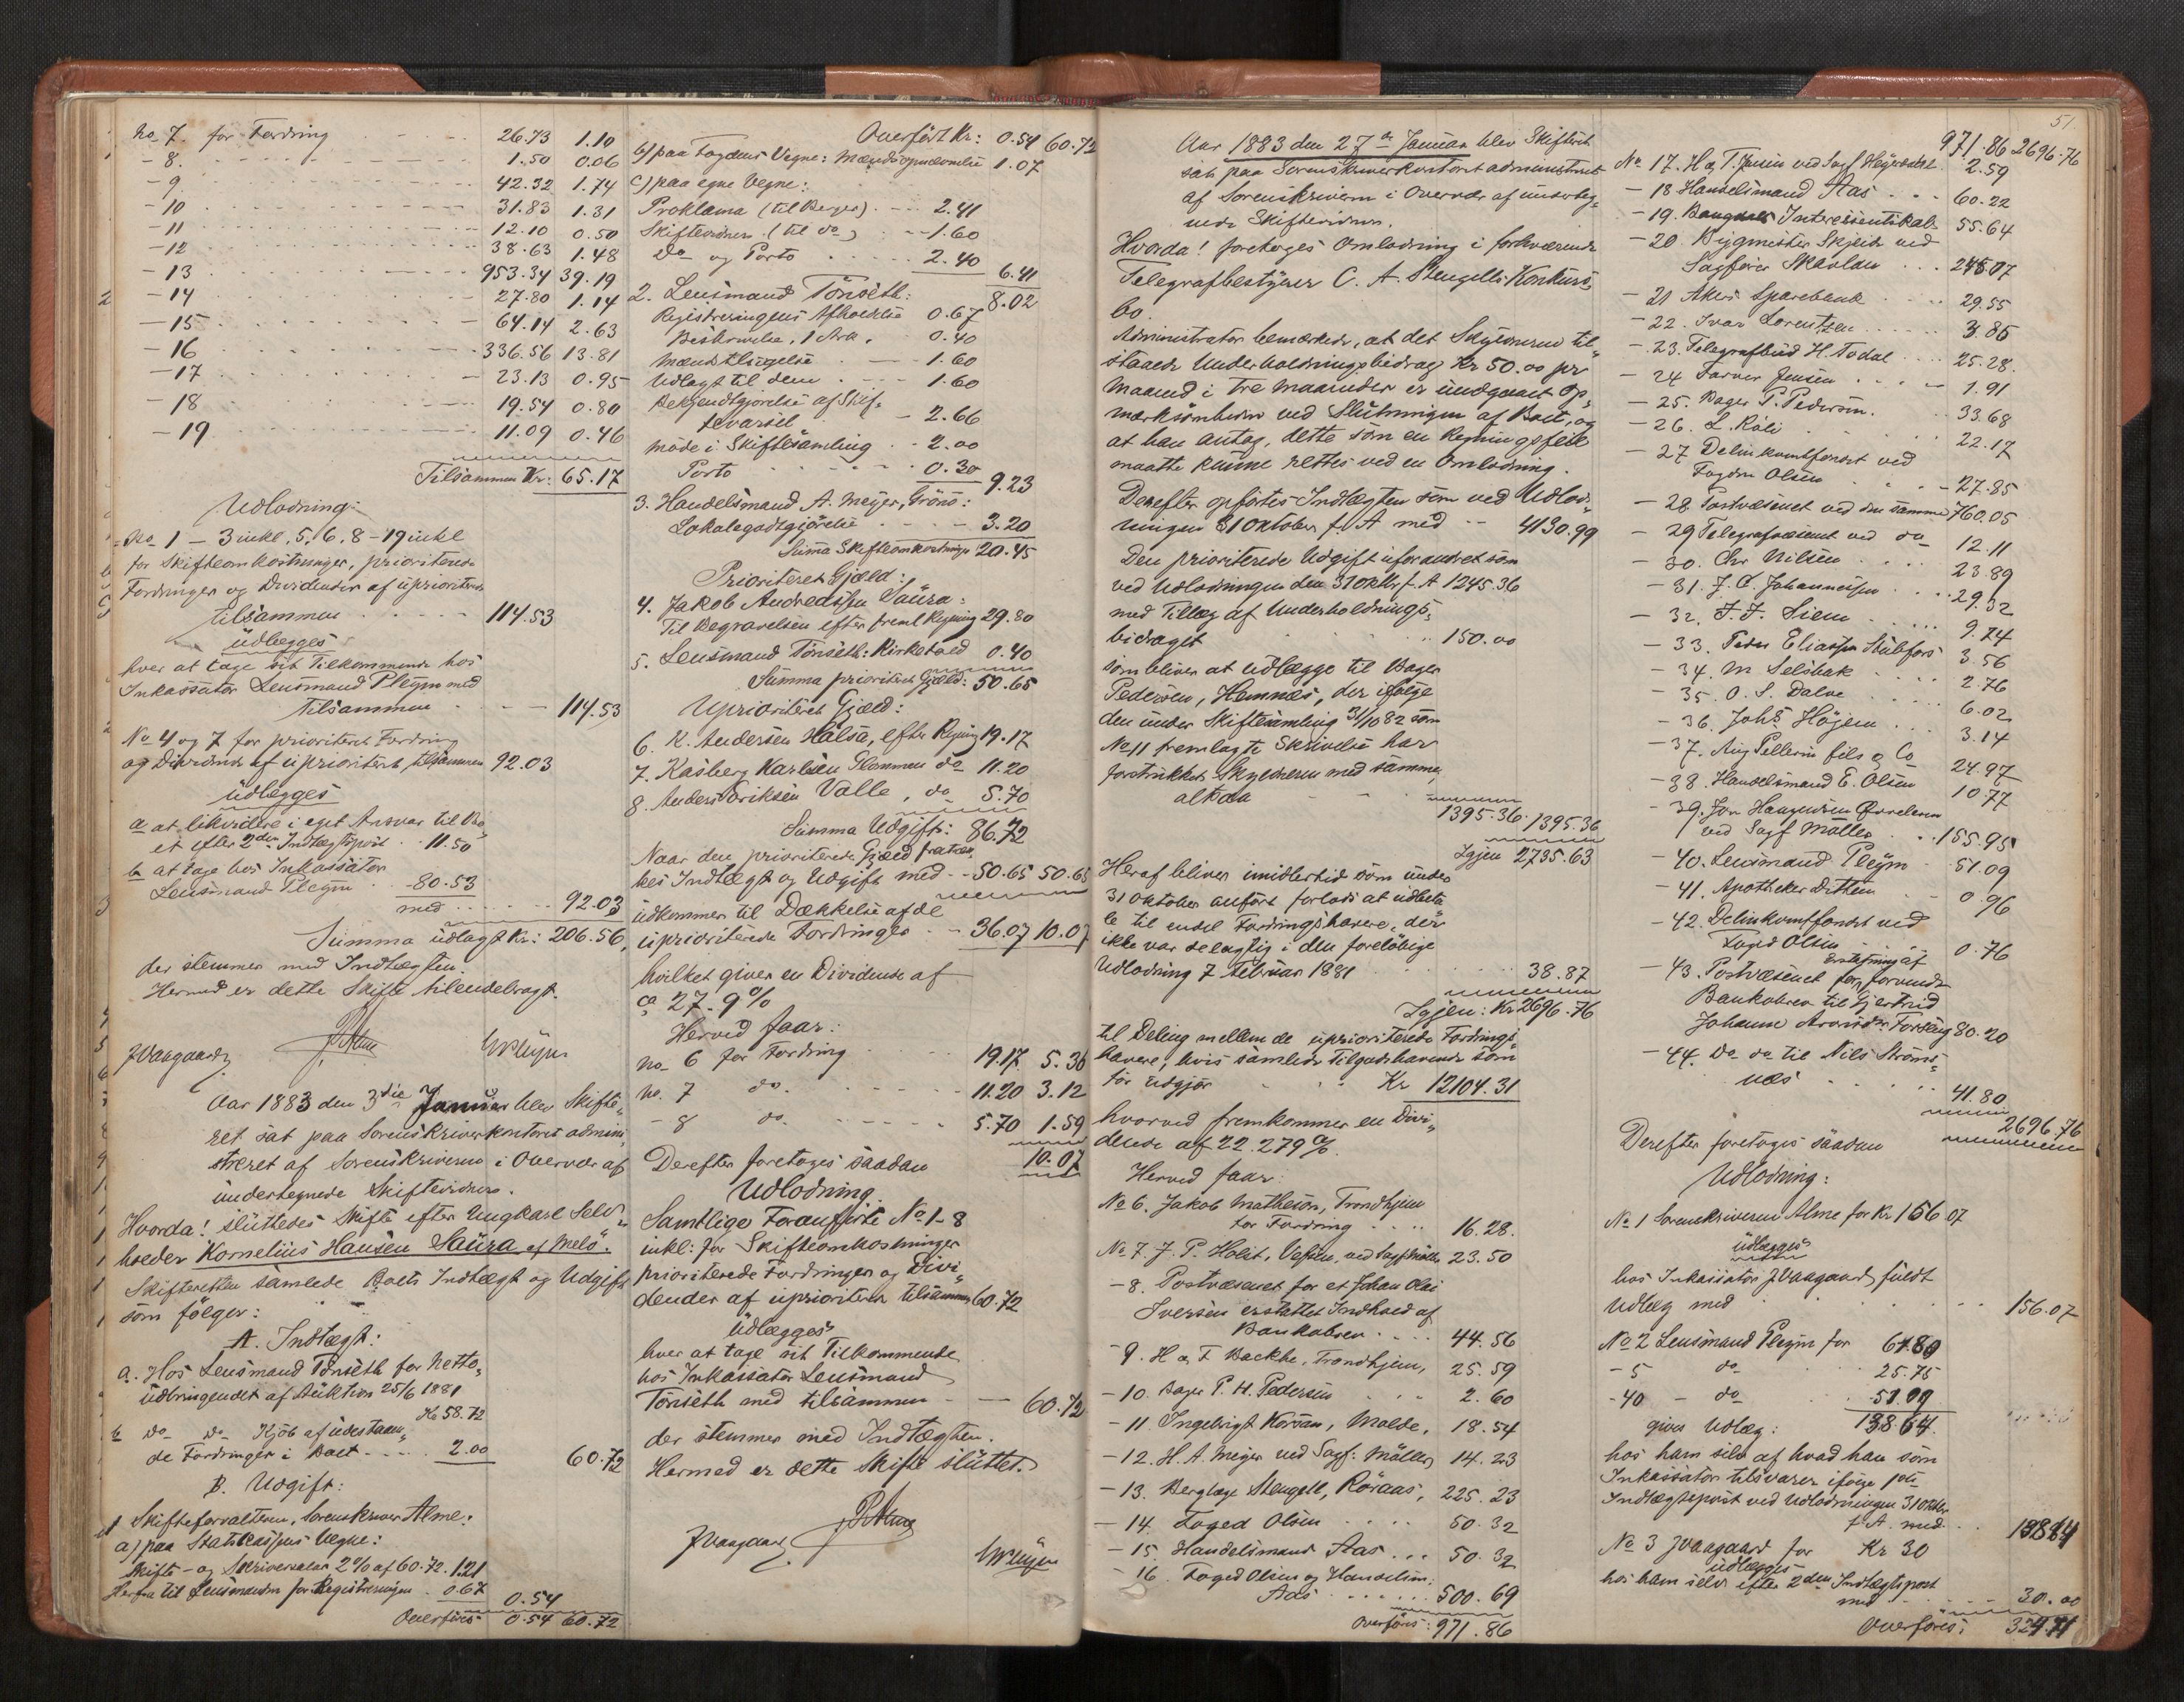 No 7. for Fordring 26.73 1.10
- 8. 1.50 0.06
- 9 42.32 1.74
- 10 31.83 1.31
- 11 12.10 0.50
- 12 38.63 1.48
- 13 953.34 39.19
- 14 27.80 1.14
- 15 64.14 2.63
- 16 336.56 13.81
- 17 23.13 0.95
- 18 19.54 0.80
- 19 11.09 0.46
Tilsammen Kr: 65.17
Udlodning:
No 1 - 3 inkl, 5, 6, 8 - 19 inkl
for Skifteomkostninger, prioriterede
Fordringer og Dividender af uprioriterede
tilsammen 114.53
udlægges
hver at tage sit Tilkommende hos
Inkassator Lensmand Pleym med
tilsammen 114.53
No 4 og 7 for prioriteret Fordring
og Dividende af uprioriteret, tilsammen 92.03
udlægges
a at likvidere i eget Ansvar til Bo-
et efter 2den Indtægtspost 11.50
b at tage hos Inkassator
Lensmand Pleym 80.53
med 92.03
Summa udlagt Kr: 206.56,
der stemmer med Indtægten.
Hermed er dette Skifte tilendebragt.
JVaagaard PAlme
Aar 1883 den 3die Januar blev Skifte-
ret sat paa Sorenskriverkontoret admini-
streret af Sorenskriveren i Overvær af
undertegnede Skiftevidner.
Hvorda! sluttedes Skifte efter Ungkarl Selv-
hoeder Kornelius Hansen Saura af Melö.
Skifteretten samlede Boets Indtægt og Udgift
som fölger:
A. Indtægt:
a. Hos Lensmand Tönseth for Netto-
udbringendet af Auktion 25/6 1881
Kr 58.72
b Do Do Kjöb af udestaaen-
de Fordringer i Boet 2.00 60.72
B. Udgift:
1 Skifteforvalteren, Sorenskriver Alme:
a) paa Statskassens Vegne:
Skifte- og Skriversalær 2% af 60.72. 1.21
Herfra til Lensmanden for Registreringen 0.67 0.54
Overföres 0.54 60.72
Overfört Kr: 0.54 60.72
b) paa Fogdens Vegne: Mændsopnævnelse 1.07
c) paa egne Vegne:
Proklama (til Berger) 2.41
Skiftevidner (til do) 1.60
Do og Porto 2.40 6.41
8.02
2. Lensmand Tönseth:
Registreringens Afholdelse 0.67
Beskrivelse, 1 Ark. 0.40
Mændstilsigelse 1.60
Udlagt til dem 1.60
Bekjendtgjörelse af Skif-
tevarsel 2.66
Möde i Skiftesamling 2.00
Porto 0.30 9.23
3. Handelsmand A. Meyer, Grönö:
Lokalegodtgjörelse 3.20
Summa Skifteomkostninger 20.45
Prioriteret Gjæld:
4. Jakob Andreassen Saura:
Til Begravelsen efter freml Regning 29.80
5. Lensmand Tönseth: Kirkebød 0.40
Summa prioriteret Gjæld: 50.65
Uprioriteret Gjæld:
6. K. Andersen Halsa, efter Regning 19.17
7. Kasberg Karlsen Glommen do 11.20
8. Anders Eriksen Valle, do 5.70
Summa Udgift: 86.72
Naar den prioriterede Gjæld fratræk-
kes Indtægt og Udgift med 50.65 50.65
udkommer til Dækkelse af de
uprioriterede Fordringer 36.07 10.07
hvilket giver en Dividende af
ca 27.9%
Herved faar:
No 6 for Fordring 19.17 5.36
No. 7 do. 11.20 3.12
- 8 do. 5.70 1.59
10.07
Derefter foretoges saadan
Udlodning
Samtlige Foranförte No 1-8
inkl: for Skifteomkostninger
prioriterede Fordringer og Divi-
dender af uprioriteret tilsammen 60.72
Udlægges
hver at tage sit Tilkommende
hos Inkassator Lensmand
Tönseth med tilsammen 60.72
der stemmer med Indtægten.
Hermed er dette Skifte sluttet.
PAlme
JVaagaard
Aar 1883 den 27de Januar blev Skifteret
sat paa Sorenskriverkontoret administreret
af Sorenskriveren i Overvær af underteg-
nede Skiftevidner.
Hvorda! foretoges Omlodning i forhværende
Telegrafbestyrer C. A. Stengells Konkurs-
bo.
Administrator bemærkede, at det Skyldneren til-
staaede Underholdningsbidrag Kr 50.00 pr
Maaned i tre Maaneder er undgaaet Op-
mærksomheden ved Slutningen af Boet, og
at han antog, dette som en Regningsfeil
maatte kunne rettes ved en Omlodning.
Derefter opförtes Indtægten som ved Udlod-
ningen 31 Oktober f. A med 4130.99
Den prioriterede Udgift uforandret som
ved Udlodningen den 31 Oktbr f. A 1245.36
med Tillæg af Underholdnings-
bidraget 150.00
som bliver at udlægge til Bager
Pedersen, Hemnæs, der ifölge
den under Skiftesamling 31/10 82 som
No 11 fremlagte Skrivelse har
forstrukket Skyldneren med samme,
altsaa 1395.36 1395.36
Igjen 2735.63
Heraf bliver imidlertid som under
31 Oktober anfört forlods at udbeta-
le til endel Fordringshavere, der
ikke var delagtig i den forelöbige
Udlodning 7 Februar 1881 38.87
Igjen: Kr 2696.76
til Deling mellem de uprioriterede Fordrings-
havere, hvis samlede Tilgodehavende som
för udgjör Kr 12104.31
hvorved fremkommer en Divi-
dende af 22.279%.
Herved faar:
No 6. Jakob Matheson, Trondhjem
for Fordring 16.28.
No 7. J. P. Holst, Vefsen, ved Sagf Möller 23.50
- 8. Postvæsenet for et Johan Olai
Iversen erstattet Indhold af
Bankobrev 44.56
- 9. H & F Backke, Trondhjem, 25.59
- 10. Bager P. H. Pedersen 2.60
- 11. Ingebrigt Korsan, Molde, 18.54
- 12. H. A. Meyer ved Sagf: Möller 14.23
- 13. Berglæge Stengell, Röraas, 225.23
- 14. Foged Olsen 50.32
- 15. Handelsmand Aas 50.32
- 16. Foged Olsen og Handelsm.
Aas 500.69
Overföres: 971.86
51.
971.86 2696.76
No 17. H & T. Jensen ved Sagf Heyerdahl 2.59
- 18 Handelsmand Aas 60.22
- 19. Interessentskab 55.64
- 20. Bygmester Skjeide ved
Sagförer Skavlan 245.07
- 21 Akers Sparebank 29.55
- 22. Ivar Lorentzen 3.85
- 23. Telegrafbud H. Todal 25.28.
- 24 Farver Jensen 1.91
- 25. Bager P. Pedersen. 33.68
- 26. L. Röli 22.17
- 27 Delinkventfondet ved
Fogden Olsen 27.85
- 28. Postvæsenet ved den samme 760.05
- 29 Telegrafvæsenet ved do 12.11
- 30. Chr Nilsen 23.89
- 31. J. C. Johannessen 29.32
- 32. F. F. Siem 9.74
- 33. Peder Eliassen Stubfors 3.56
- 34. M Selsbak 2.76
- 35. O. S. Dalve 6.02
- 36. Johs Höjem 3.14
- 37. Aug Pellerin fils & Co 24.97
- 38. Handelsmand E. Olsen 10.77
- 39. Jon Haagensen
ved Sagf Möller 155.95
- 40. Lensmand Pleym 51.09
- 41. Apotheker Ditten 0.96
- 42. Delinkventfondet ved
Foged Olsen 0.76
- 43. Postvæsenet for Erstatning af forvundt
Bankobrev til Gjertrud
Johanne Arvesdr Forseng 80.20
- 44. Do do til Nils Ströms-
næs 41.80
2696.76
Derefter foretoges saadan
Udlodning:
No 1 Sorenskriveren Alme for Kr 156.07
udlægges
hos Inkassator JVaagaard fuldt
Udlæg med 156.07
No 2 Lensmand Pleym for 61.80
- 5 do 25.75
- 40 - do 51.09
gives Udlæg: 138.64.
hos ham selv af hvad han som
Inkassator tilsvarer ifölge 1ste
Indtægtspost ved Udlodningen 31 Oktbr
f. A. med 138.64
No 3 JVaagaard for Kr 30
udlægges
hos ham selv efter 2den Indtægtspost
med 30.00
Overföres: 324.71